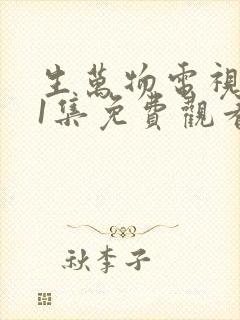 生萬物電視
1集免費觀看
秋李子